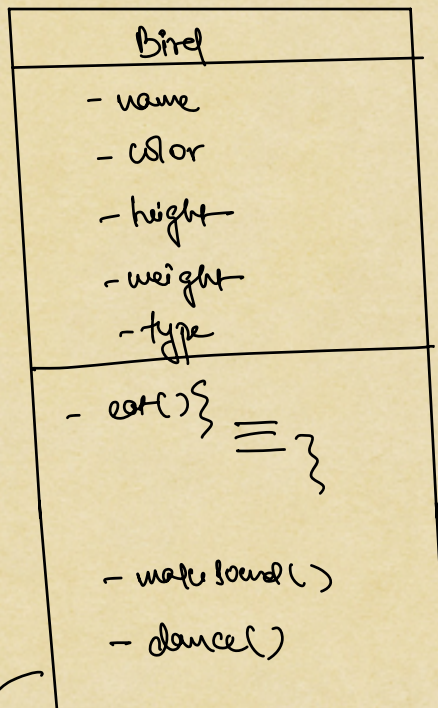 Bird
- name
- color
- height
- weight
- type
- eat() {
}
- makeSound()
- dance()